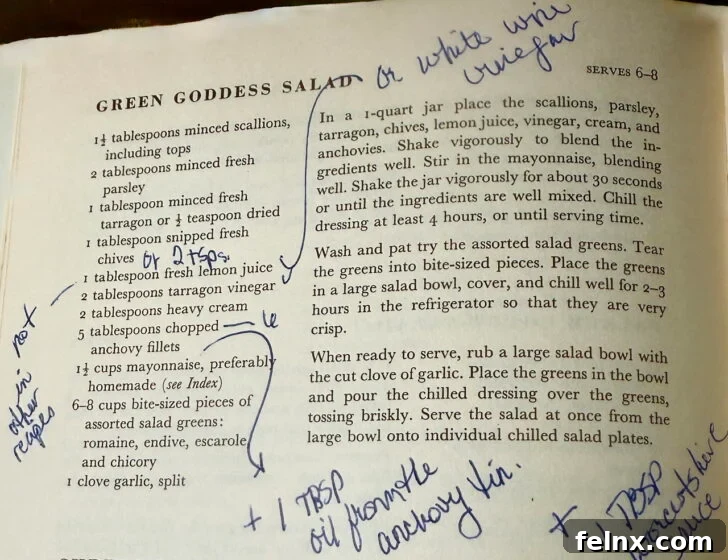 or white wine
vinegar
GREEN GODDESS SALAD
SERVES 6–8
1½ tablespoons minced scallions,
including tops
2 tablespoons minced fresh
parsley
1 tablespoon minced fresh
tarragon or ½ teaspoon dried
1 tablespoon snipped fresh
chives or 2 tsps.
1 tablespoon fresh lemon juice
2 tablespoons tarragon vinegar
2 tablespoons heavy cream
5 tablespoons chopped
anchovy fillets
1½ cups mayonnaise, preferably
homemade (see Index)
6–8 cups bite-sized pieces of
assorted salad greens:
romaine, endive, escarole
and chicory
1 clove garlic, split
not
in
other
recipes
In a 1-quart jar place the scallions, parsley,
tarragon, chives, lemon juice, vinegar, cream, and
anchovies. Shake vigorously to blend the in-
gredients well. Stir in the mayonnaise, blending
well. Shake the jar vigorously for about 30 seconds
or until the ingredients are well mixed. Chill the
dressing at least 4 hours, or until serving time.
Wash and pat try the assorted salad greens. Tear
the greens into bite-sized pieces. Place the greens
in a large salad bowl, cover, and chill well for 2–3
hours in the refrigerator so that they are very
crisp.
When ready to serve, rub a large salad bowl with
the cut clove of garlic. Place the greens in the bowl
and pour the chilled dressing over the greens,
tossing briskly. Serve the salad at once from the
large bowl onto individual chilled salad plates.
+ 1 TBSP
oil from the
anchovy tin.
+ 1 TBSP
felnx.com